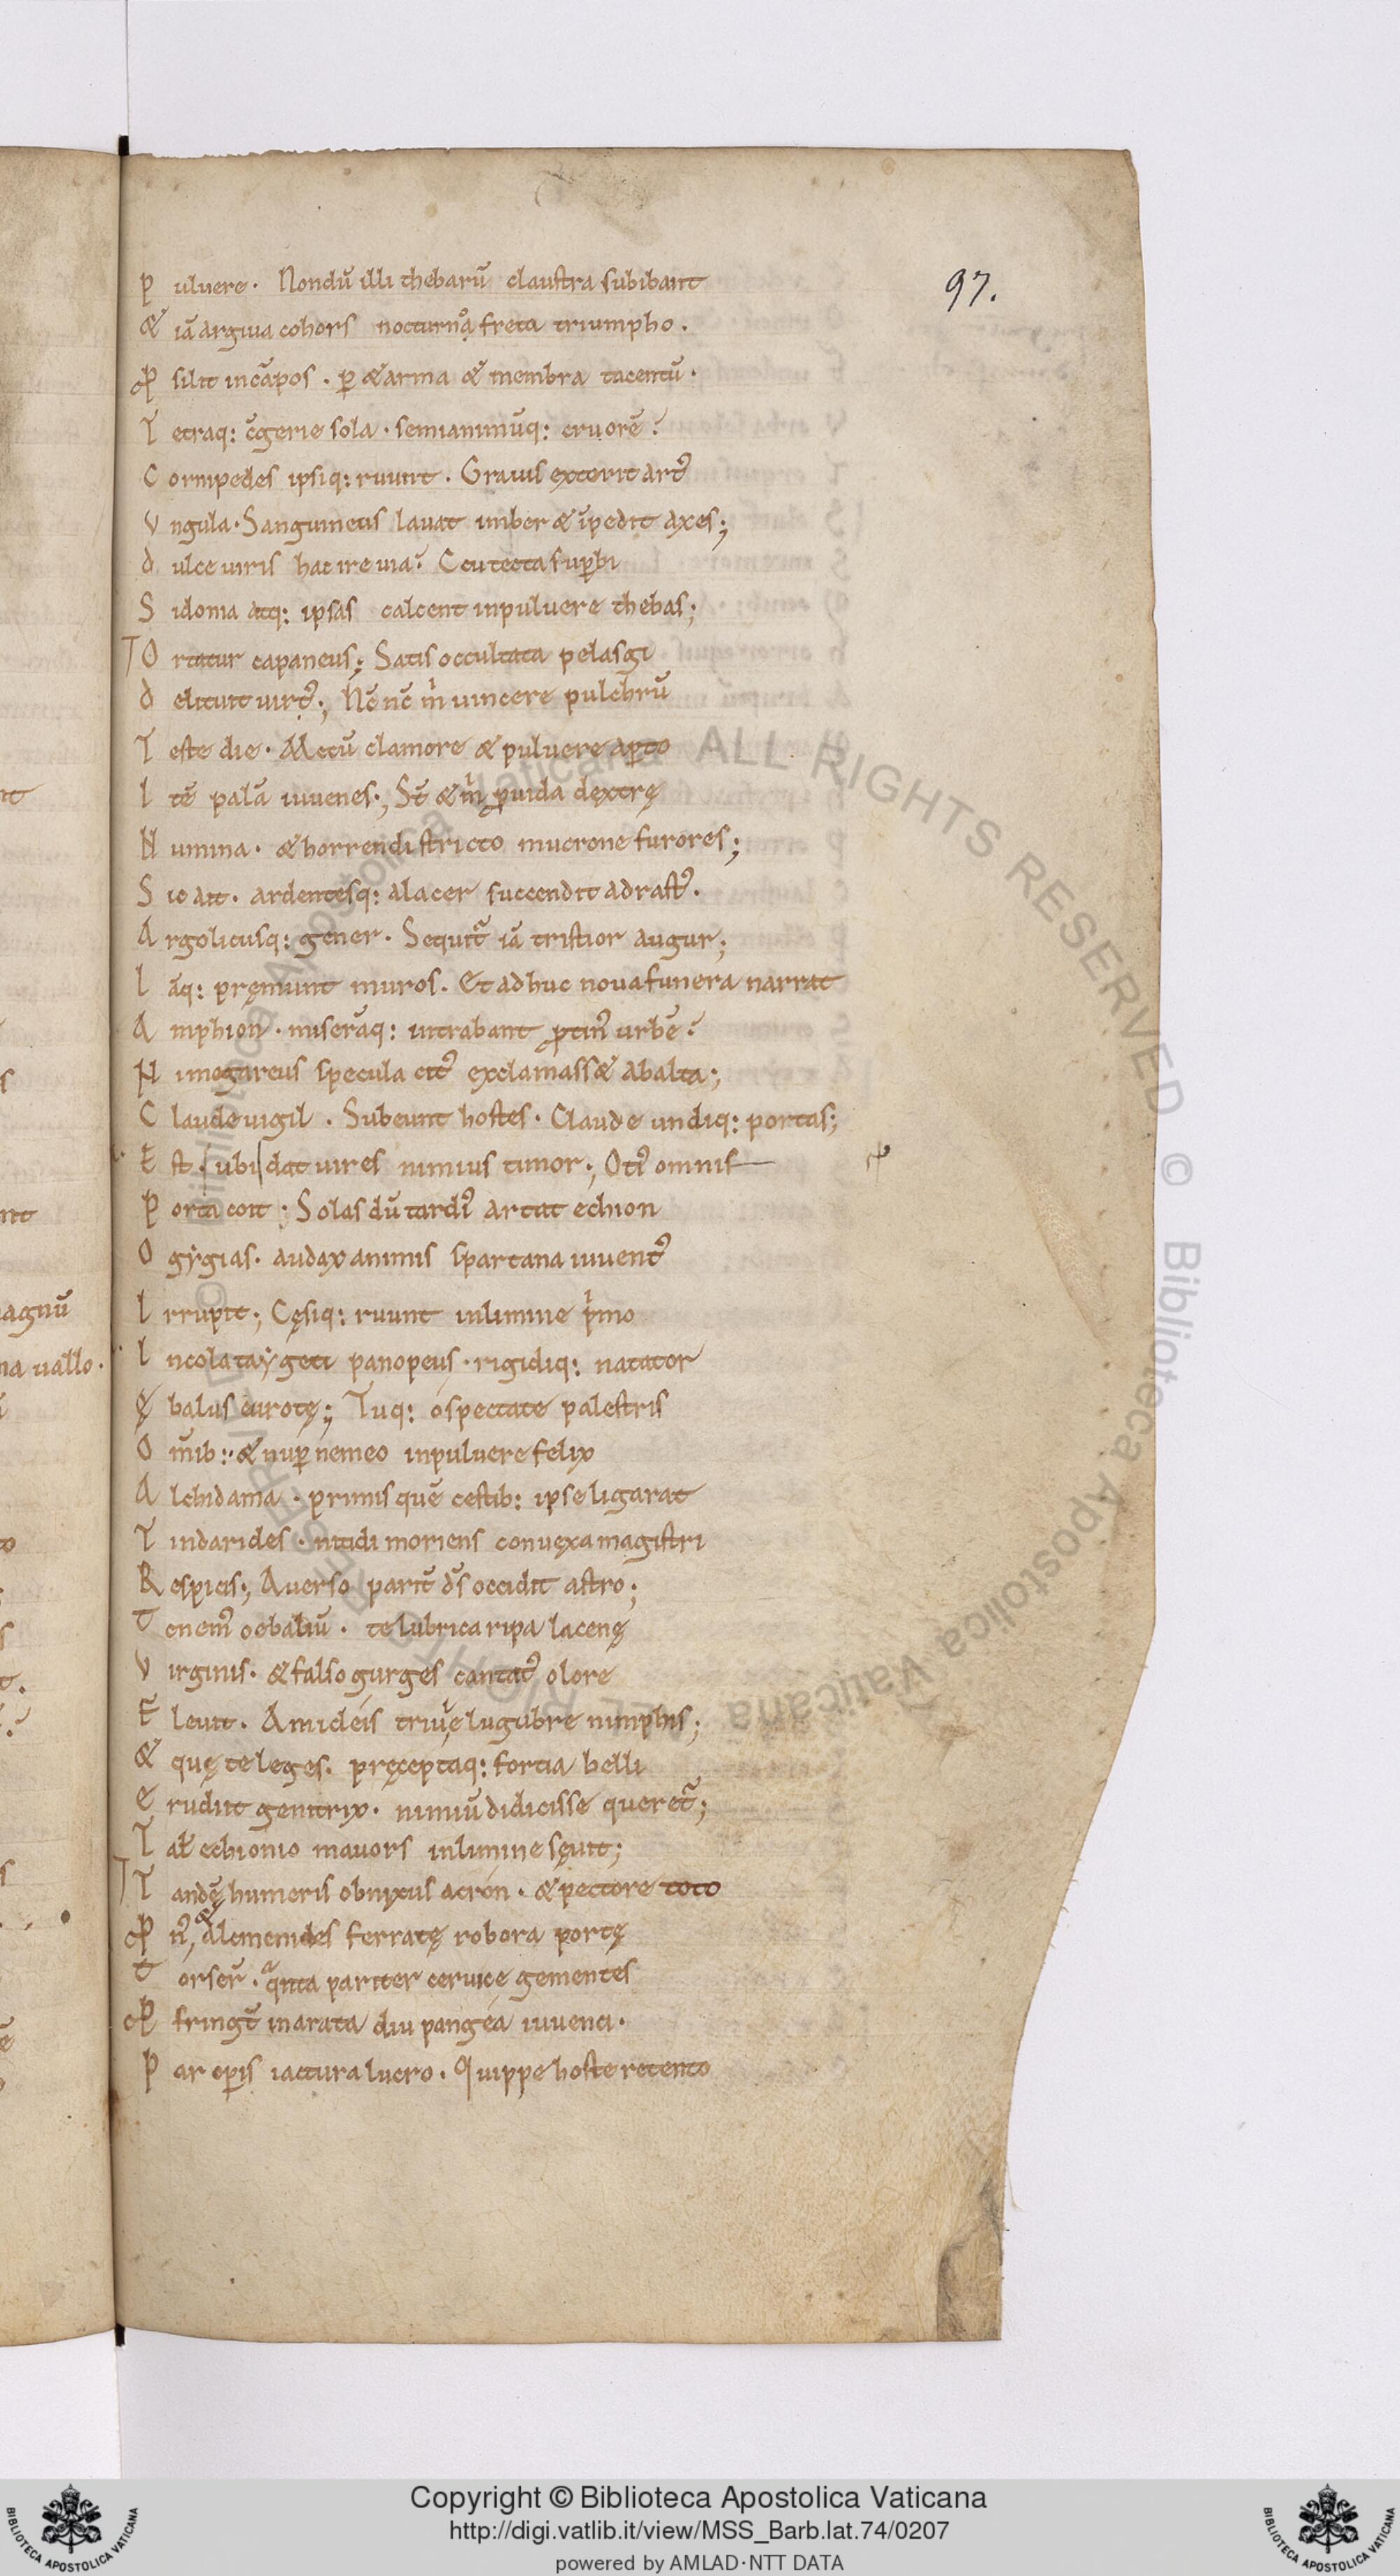 97.
P uluere. Nondū illi thebarū claustra subibant
& iā argiua cohors nocturno freta triumpho.
Ꝓ silit incāpos. ꝑ & arma & membra iacentū.
T etraq: c̄gerie sola. semianimūq: cruorē?
C ornipedes ipsiq: ruunt. Grauis exterit art᷒
V ngula. Sanguineus lauat imber & īpedit axes;
D ulce uiris hac ire uia? Ceu tecta suꝑbi
S idonia atq: ipsas calcent inpuluere thebas;
O rtatur capaneus; Satis occultata pelasgi
D elituit uirt᷒; Nc̄ nc̄ m̊ uincere pulchrū
T este die. Mecū clamore & puluere aꝑto
I tē palā iuuenes; St̄ & m̊ ꝓuida dextrę
N umina. & horrendi stricto mucrone furores;
S ic ait. ardentesq: alacer succendit adrast᷒.
A rgolicusq: gener. Sequit̃ iā tristior augur;
I āq: pręmunt muros. Et adhuc noua funera narrat
A mphion. miserāq: intrabant ꝓtin᷒ urbē?
N i megareus specula cit᷒ exclamass& abalta;
C laude uigil. Subeunt hostes. Claude undiq: portas;
E st ubi dat uires nimius timor; Oti᷒ omnis
P orta coit; Solas dū tardi᷒ artat echion
O gẏgias. audax animis spartana iuuent᷒
I rrupit; Cęsiq: ruunt inlimine p̊mo
I ncola taẏgeti panopeus. rigidiq: natator
Ę balus eurotę; Tuq: óspectate palestris
O m̄ib:. & nuꝑ nemeo inpuluere felix
A lchidama. primis quē cestib: ipse ligarat
T indarides. nitidi moriens conuexa magistri
R espicis; Auerso parit̄ ds̄ occidit astro;
T e nem᷒ oebaliū. te lubrica ripa lacenę
V irginis. & falso gurges cantat᷒ olore
F leuit. Amideis triuię lugubre nimphis;
& quę te leges. pręceptaq: fortia belli
E rudiit genitrix. nimiū didicisse queret̃;
T at̄ echionio mauors inlimine sęuit;
T andē humeris obnixus acrón. & pectore toto
Ꝓ n᷒, & Alemenides ferratę robora portę
T orser̄. q̃nta pariter ceruice gementes
Ꝓ fringt̄ inarata diu pangéa iuuenci.
P ar oꝑis iactura lucro. Quippe hoste retento
Copyright © Biblioteca Apostolica Vaticana
http://digi.vatlib.it/view/MSS_Barb.lat.74/0207
powered by AMLAD·NTT DATA